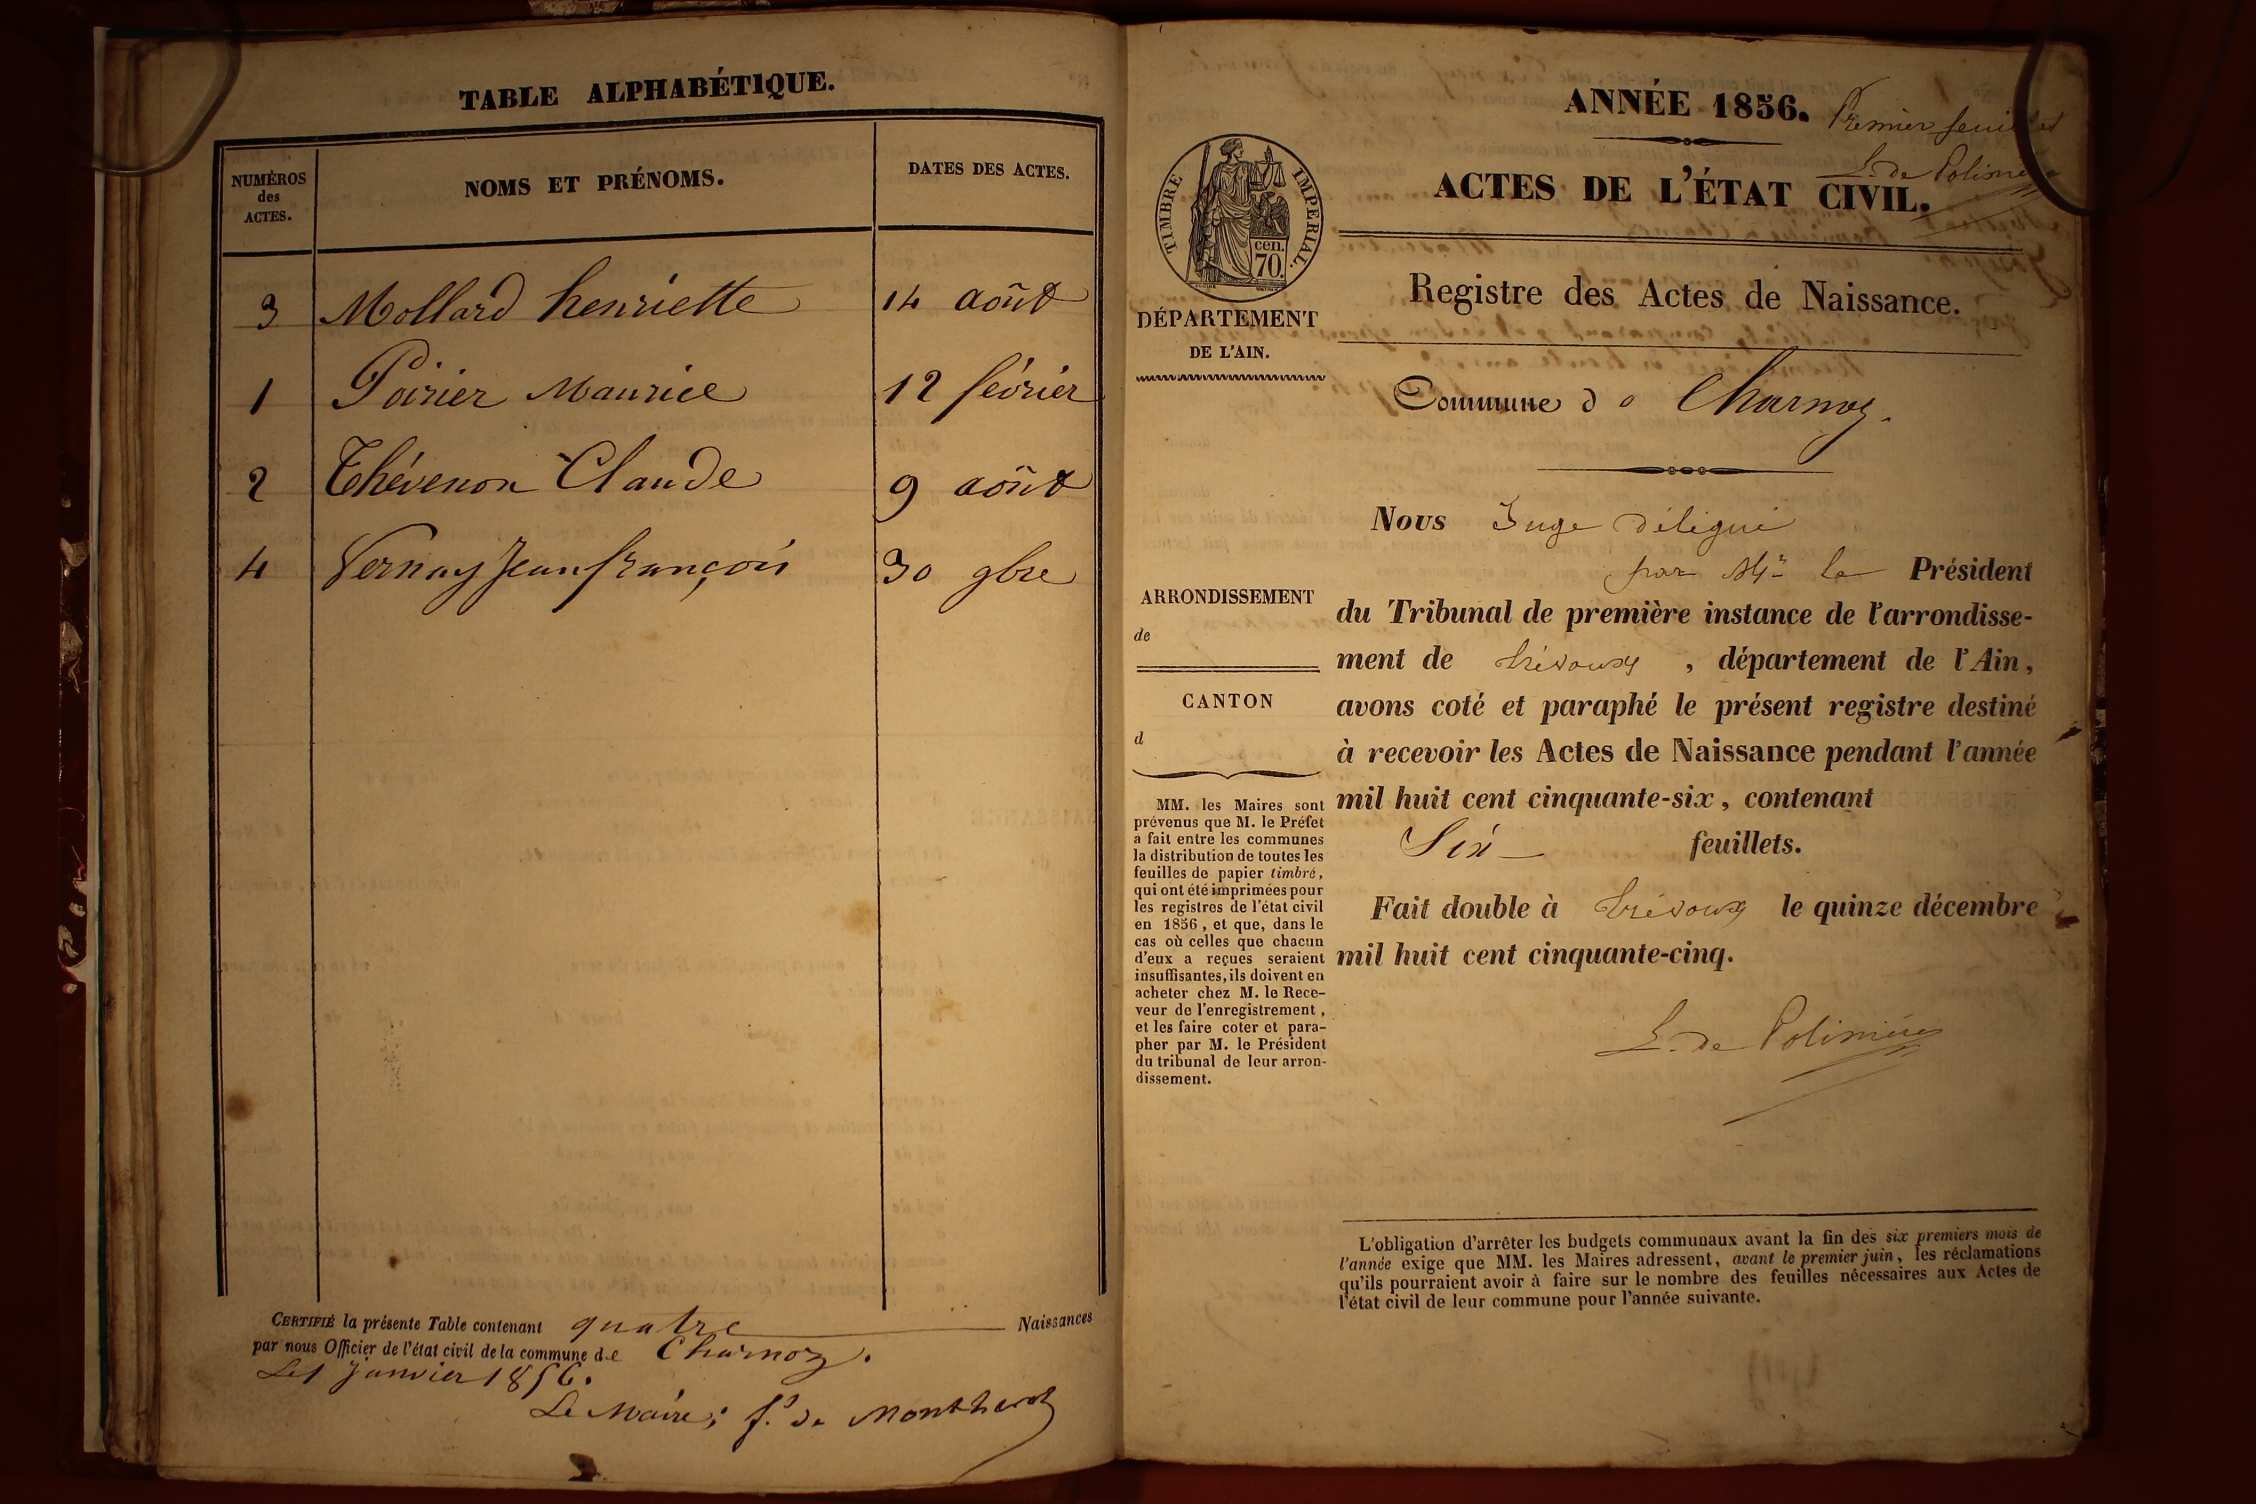 TABLE ALPHABÉTIQUE.
NUMÉROS des ACTES. NOMS ET PRÉNOMS. DATES DES ACTES.
3 Mollard henriette 14 août
1 Poirier Maurice 12 février
2 Thévenon Claude 9 août
4 Vernay Jean françois 30 9bre
CERTIFIÉ la présente Table contenant quatre Naissances
par nous Officier de l'état civil de la commune de Charnoz.
Le 1 Janvier 1856.
Le Maire; f. de Montherot
ANNÉE 1856.
Premier feuillet
L. de Polinière
ACTES DE L'ÉTAT CIVIL.
TIMBRE IMPERIAL.
cen.
70.
Registre des Actes de Naissance.
DÉPARTEMENT
DE L'AIN.
Commune de Charnoz.
Nous Juge délégué
par Mr le Président
du Tribunal de première instance de l'arrondisse-
ment de Trévoux, département de l'Ain,
avons coté et paraphé le présent registre destiné
à recevoir les Actes de Naissance pendant l'année
mil huit cent cinquante-six, contenant
Six feuillets.
Fait double à Trévoux le quinze décembre
mil huit cent cinquante-cinq.
L. de Polinière
ARRONDISSEMENT
de
CANTON
d
MM. les Maires sont
prévenus que M. le Préfet
a fait entre les communes
la distribution de toutes les
feuilles de papier timbré,
qui ont été imprimées pour
les registres de l'état civil
en 1856, et que, dans le
cas où celles que chacun
d'eux a reçues seraient
insuffisantes, ils doivent en
acheter chez M. le Rece-
veur de l'enregistrement,
et les faire coter et para-
pher par M. le Président
du tribunal de leur arron-
dissement.
L'obligation d'arrêter les budgets communaux avant la fin des six premiers mois de
l'année exige que MM. les Maires adressent, avant le premier juin, les réclamations
qu'ils pourraient avoir à faire sur le nombre des feuilles nécessaires aux Actes de
l'état civil de leur commune pour l'année suivante.